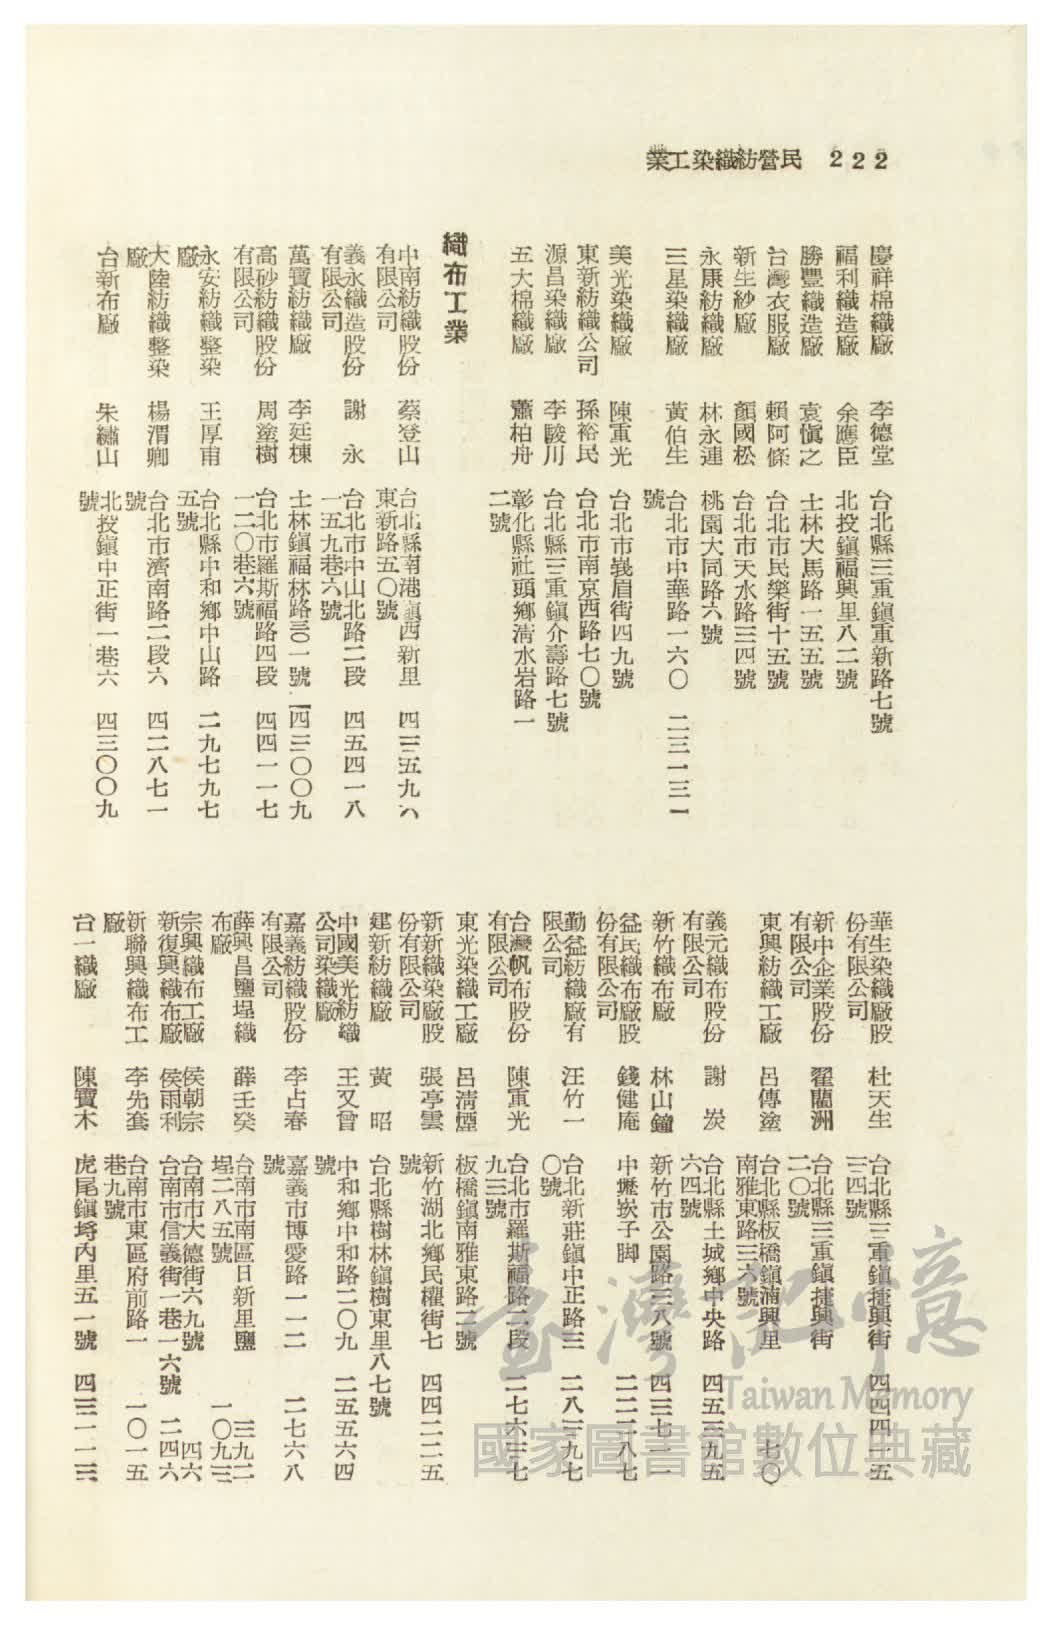 222 民營紡織染工業
慶祥棉織廠 李德堂 台北縣三重鎮重新路七號
福利織造廠 余應臣 北投鎮福興里八二號
勝豐織造廠 袁愼之 士林大馬路一五五號
台灣衣服廠 賴阿條 台北市民樂街十五號
新生紗廠 顏國松 台北市天水路三四號
永康紡織廠 林永連 桃園大同路六號
三星染織廠 黃伯生 台北市中華路一六〇 二三一三一
號
美光染織廠 陳重光 台北市峩眉街四九號
東新紡織公司 孫裕民 台北市南京西路七〇號
源昌染織廠 李駿川 台北縣三重鎮介壽路七號
五大棉織廠 蕭柏舟 彰化縣社頭鄉淸水岩路一
二號
織布工業
中南紡織股份 蔡登山 台北縣南港鎮西新里
有限公司 東新路五〇號
義永織造股份 謝永 台北市中山北路二段 四五四一八
有限公司 一五九巷六號
萬寶紡織廠 李廷棟 士林鎮福林路三〇一號 四三〇〇九
高砂紡織股份 周塗樹 台北市羅斯福路四段 四四一一七
有限公司 一二〇巷六號
永安紡織整染 王厚甫 台北縣中和鄉中山路 二九七九七
廠 五號
大陸紡織整染 楊渭卿 台北市濟南路二段六 四二八七一
廠 號
台新布廠 朱繡山 北投鎮中正街一巷六 四三〇〇九
號
華生染織廠股 杜天生 台北縣三重鎮捷興街 四四四一五
份有限公司 三四號
新中企業股份 翟藺洲 台北縣三重鎮捷興街
有限公司 二〇號
東興紡織工廠 呂傳塗 台北縣板橋鎮湳興里 七〇
南雅東路三六號
義元織布股份 謝炭 台北縣土城鄉中央路 四五三九五
有限公司 六四號
新竹織布廠 林山鐘 新竹市公園路三八號 四三七一一
益民織布廠股 錢健庵 中壢崁子脚 二二二八七
份有限公司
勤益紡織廠有 汪竹一 台北新莊鎮中正路三 二八三九七
限公司 〇號
台灣帆布股份 陳重光 台北市羅斯福路二段 二七六三七
有限公司 九三號
東光染織工廠 呂淸煙 板橋鎮南雅東路二號
新新織染廠股 張亭雲 新竹湖北鄉民權街七 四四二二五
份有限公司 號
建新紡織廠 黃昭 台北縣樹林鎮樹東里八七號
中國美光紡織 王又曾 中和鄉中和路二〇九 二五五六四
公司染織廠 號
嘉義紡織股份 李占春 嘉義市博愛路一一二 二七六八
有限公司 號
薛興昌鹽埕織 薛壬癸 台南市南區日新里鹽 三九二
布廠 埕二八五號
宗興織布工廠 侯朝宗 台南市大德街六九號 四六
新復興織布廠 侯雨利 台南市信義街一巷一六號 二四六
新聯興織布工 李先套 台南市東區府前路一 一〇一五
廠 巷九號
台一織廠 陳寶木 虎尾鎮埓內里五一號 四三一一三
臺灣記憶
Taiwan Memory
國家圖書館數位典藏